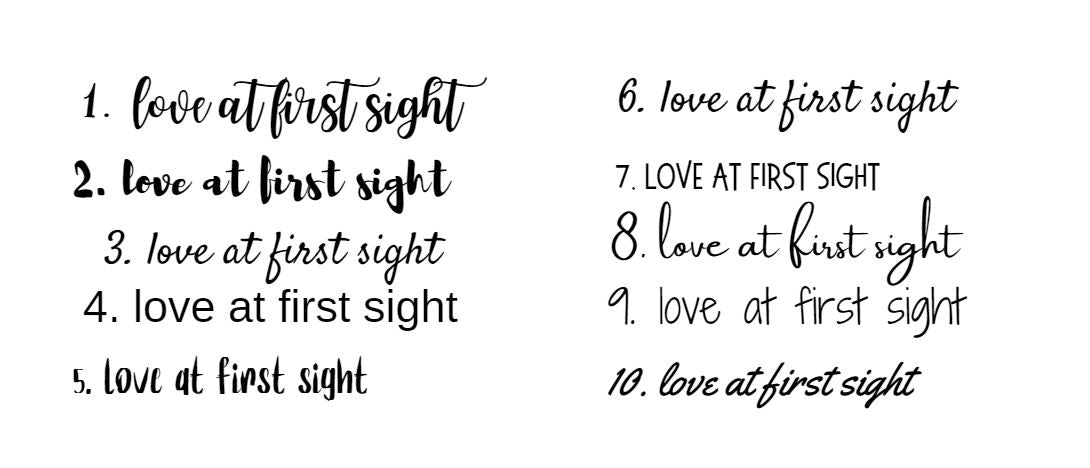 1. love at first sight
2. love at first sight
3. love at first sight
4. love at first sight
5. love at first sight
6. love at first sight
7. LOVE AT FIRST SIGHT
8. love at first sight
9. love at first sight
10. love at first sight